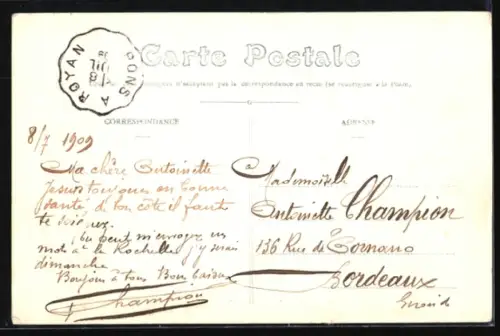 Carte Postale
PONS A ROYAN
CORRESPONDANCE
ADRESSE
8/7 1909
Ma chère Antoinette
Je suis toujours en bonne
santé, de ton côté il faut
te soigner.
tu peut m'envoyer un
mot à la Rochelle j'y serai
dimanche
Bonjour à tous Bons baisers
Champion
a
Mademoiselle
Antoinette Champion
136 Rue de Cornano
Bordeaux
Gironde